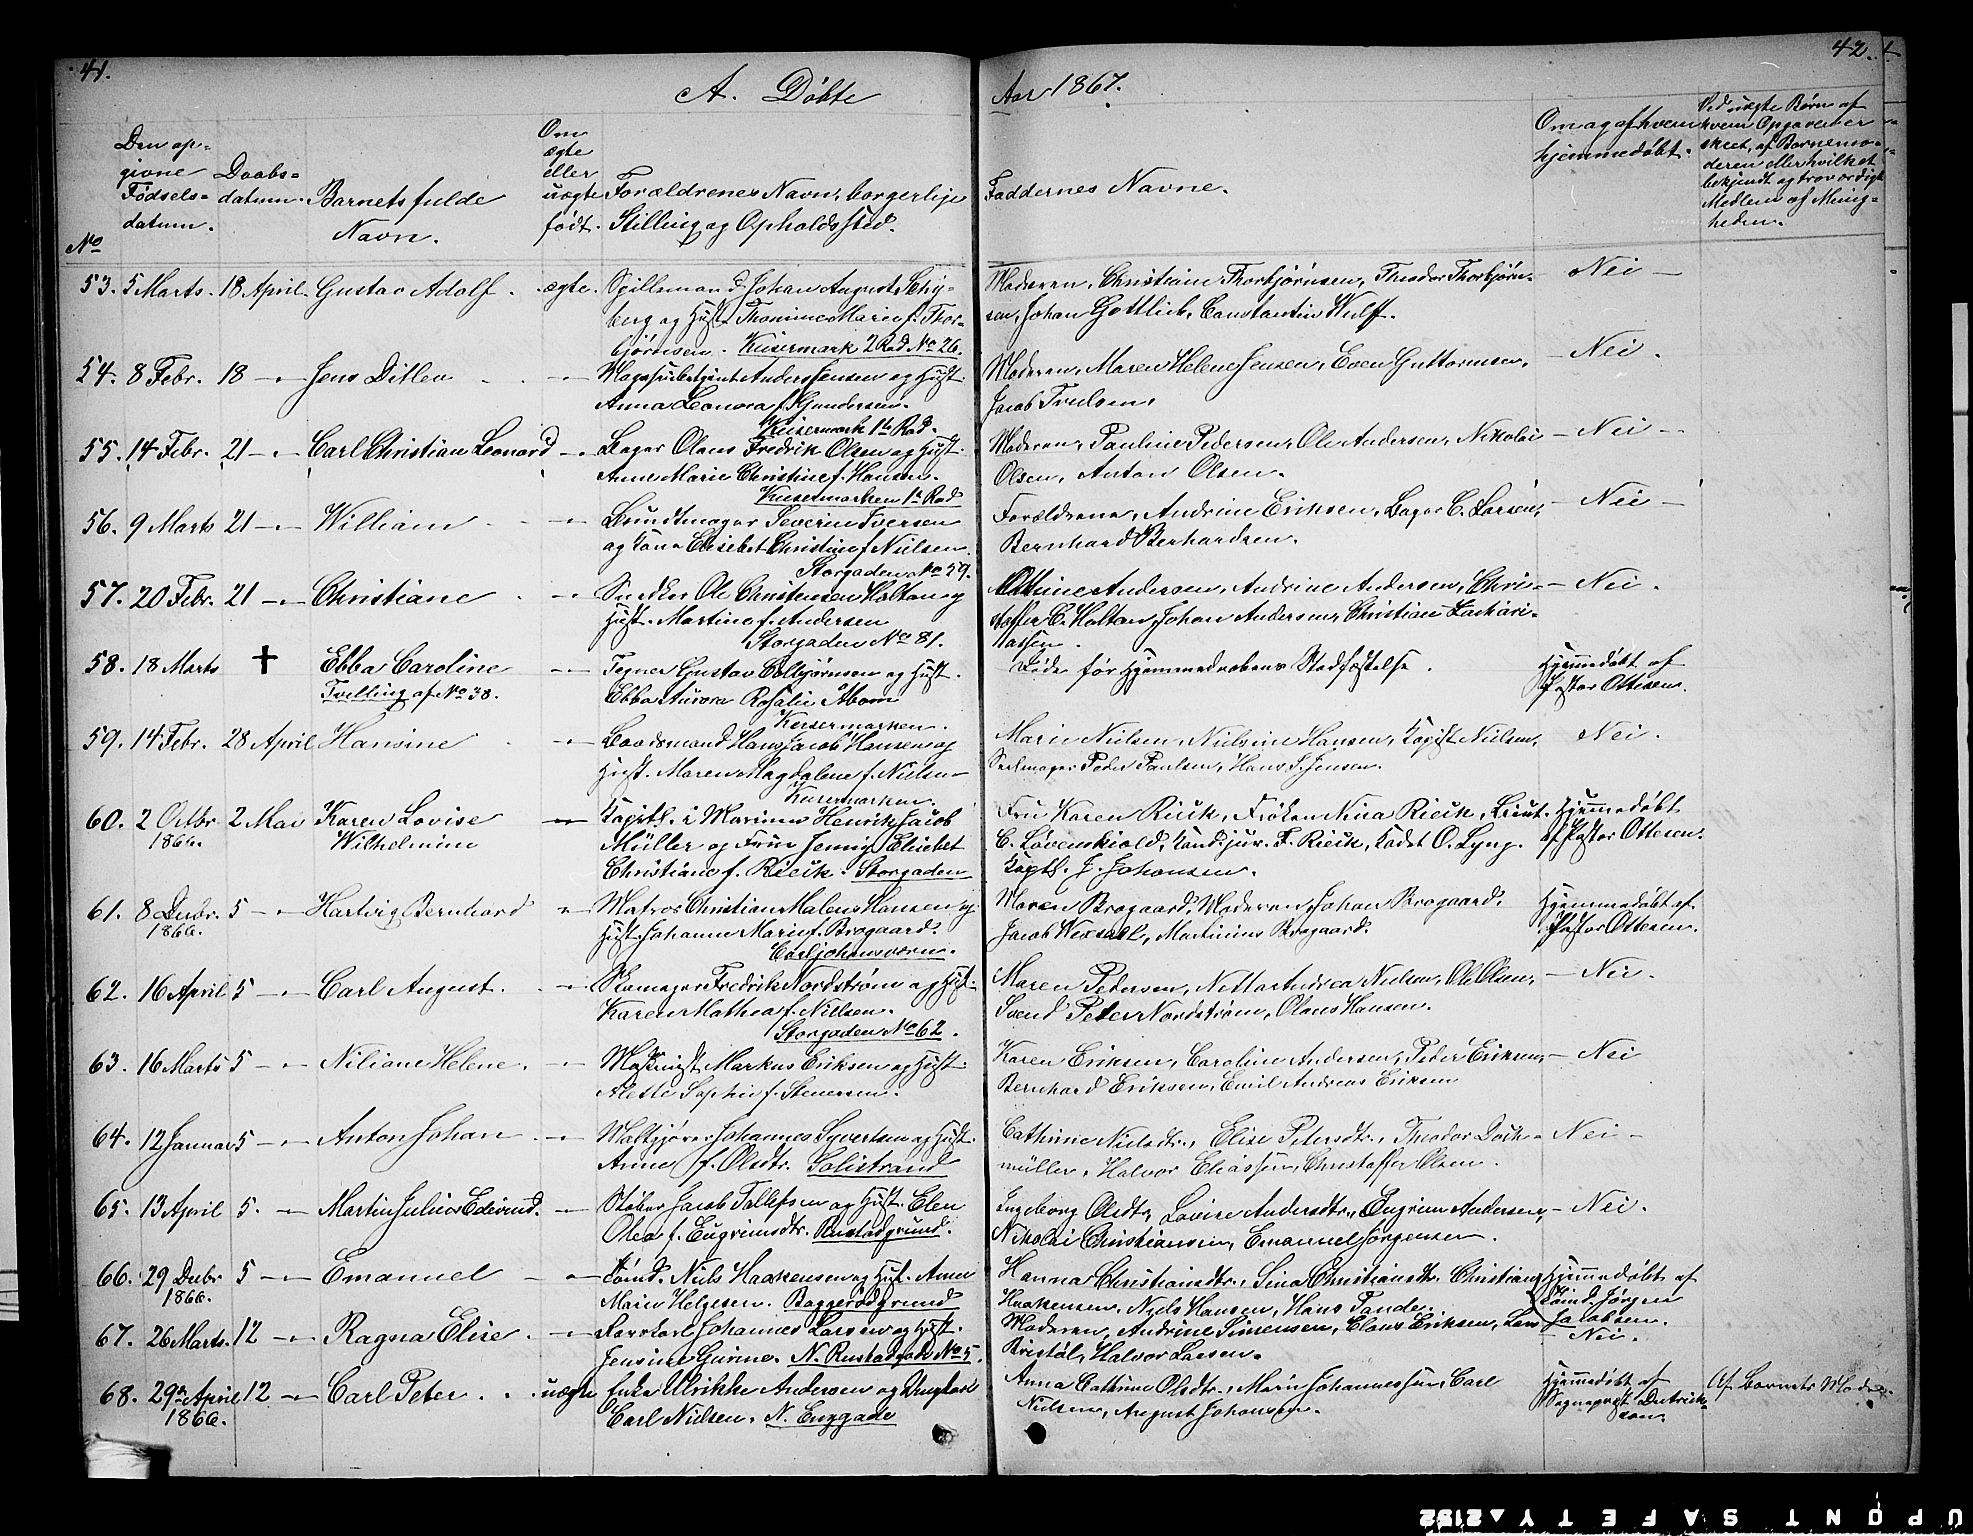 41.
A. Døbte
Aar 1867.
42.
No
Den op-
givne
Fødsels-
datum.
Daabs-
datum.
Barnets fulde
Navn.
Om
ægte
eller
uægte
født.
Forældrenes Navn, borgerlige
Stilling og Opholdssted.
Faddernes Navne.
Om og af hvem
hjemmedøbt.
Ved uægte Børn af
hvem Opgaven er
skeet, af Barnemo-
deren eller hvilket
bekjendt og troværdigt
Medlem af Menig-
heden.
53. 5 Marts. 18 April. Gustav Adolf. ægte. Spillemand Johan August Schy-
berg og Hust. Thomine Marie f. Thor-
bjørnsen. Keisermark 2 Rad No 26.
Moderen, Christiane Thorbjørnsen, Theodor Thorbjørn-
sen, Johan Gottlieb, Constantin Wulff.
Nei
54. 8 Febr. 18 — Jens Ditlev — Anders Jensen og Hust.
Anna Leonora f. Gundersen.
Keisermark 1ste Rad.
Moderen, Maren Helene Jensen, Even Guttormsen,
Jacob Truelsen.
Nei.
55. 14 Febr. 21 — Carl Christian Leonard — Bager Olaus Fredrik Olsen og Hust.
Anne Marie Christine f. Hansen.
Keisermarken 1ste Rad
Moderen, Pauline Pedersen, Ole Andersen, Nikolai
Olsen, Anton Olsen.
Nei
56. 9 Marts 21 — William — Bundtmager Severin Iversen
og Kone Elisebet Christine f. Nielsen.
Storgaden No 59.
Forældrene, Andrine Eriksen, Bager C. Larsen,
Bernhard Berhardsen.
Nei
57. 20 Febr. 21 — Christiane — Snedker Ole Christensen Holtan og
Hust. Martine f. Andersen
Storgaden No 81.
Othine Andersen, Andrine Andersen, Chri-
stoffer C. Holtan, Johan Andersen, Christian Zachari-
assen.
Nei.
58. 18 Marts † Ebba Caroline
Tvelling af No 38.
— Tegner Gustav Colbjørnsen og Hust.
Ebba Aurora Rosalie Åbom
Keisermarken.
Døde før Hjemmedaabens Stadfæstelse.
Hjemmedøbt af
Pastor Ottesen.
59. 14 Febr. 28 April Hansine — Baadsmand Hans Jacob Hansen og
Hust. Maren Magdalene f. Nielsen
Keisermarken.
Marie Nielsen, Nielsine Hansen, Nielsen,
Seilmager Peder Paulsen, Hans J. Jensen.
Nei.
60. 2 Octbr
1866.
2 Mai Karen Lovise
Wilhelmine
— Captl. i Marinen Henrik Jacob
Müller og Frue Jenny Elisebet
Christiane f. Rieck. Storgaden
Fru Karen Rieck, Frøken Nina Rieck, Lieut.
C. Løvenskiold, Kand. jur. F. Rieck, Kadet O. Lyng.
Captl. J. Johansen.
Hjemmedøbt
af Pastor Ottesen.
61. 8 Decbr.
1866.
5 — Hartvig Bernhard — Matros Christian Malenius Hansen og
Hust. Johanne Marie f. Brogaard.
Carljohansværn.
Maren Brogaard, Moderen, Johan Brogaard,
Jacob Wexsall, Martinius Brogaard.
Hjemmedøbt af
Pastor Ottesen.
62. 16 April 5 — Carl August. — Skomager Fredrik Nordstrøm og Hust.
Karen Mathea f. Nielsen.
Storgaden No 62.
Maren Pedersen, Netta Andrea Nielsen, Ole Olsen,
Svend Peter Nordstrøm, Olaus Hansen.
Nei.
63. 16 Marts 5 — Niliane Helene. — Maskinist Markus Eriksen og Hust.
Alette Sophie f. Stenersen.
Karen Eriksen, Caroline Andersen, Peder Eriksen,
Bernhard Eriksen, Emil Andreas Eriksen
Nei
64. 12 Januar 5 — Anton Johan. — Maltgjører Johannes Syvertsen og Hust.
Anne f. Olsdtr. Solistrand
Cathrine Nielsdtr., Elise Petersdtr., Theodor Doth-
müller, Halvor Eliassen, Christoffer Olsen.
Nei
65. 13 April 5. — Martin Julius Edvind. — Støber Jacob Tollefsen og Hust. Elen
Olea f. Engrimsdtr. Rustadgrund.
Ingeborg Olsdtr., Lovise Andersdtr., Engrim Andersen,
Nikolai Christiansen, Emanuel Jørgensen.
Nei.
66. 29 Decbr
1866.
5 — Emanuel — Tømd. Niels Haakensen og Hust. Anne
Marie Helgesen. Baggerødgrund
Hanna Christiansdtr., Sina Christiansdtr. Christian
Haakensen, Niels Hansen, Hans Tande.
Hjemmedøbt af
Tømd. Jørgen
Jacobsen.
67. 26 Marts. 12 — Ragna Elise. — Johannes Larsen og Hust.
Jensine Gurine. N. Rustadgade No 5.
Moderen, Andrine Simensen, Claus Eriksen, Lars
Bristøl, Halvor Larsen.
Nei.
68. 29de April
1866.
12 — Carl Peter. uægte Enke Ulrikke Andersen og Ungkarl
Carl Nielsen. N. Enggade
Anna Cathrine Olsdtr., Marie Johannessen, Carl
Nielsen, August Johansen.
Hjemmedøbt af
Sognepræst Dietrick-
son.
Af Barnets Moder.
UPONT SAFETY 2152